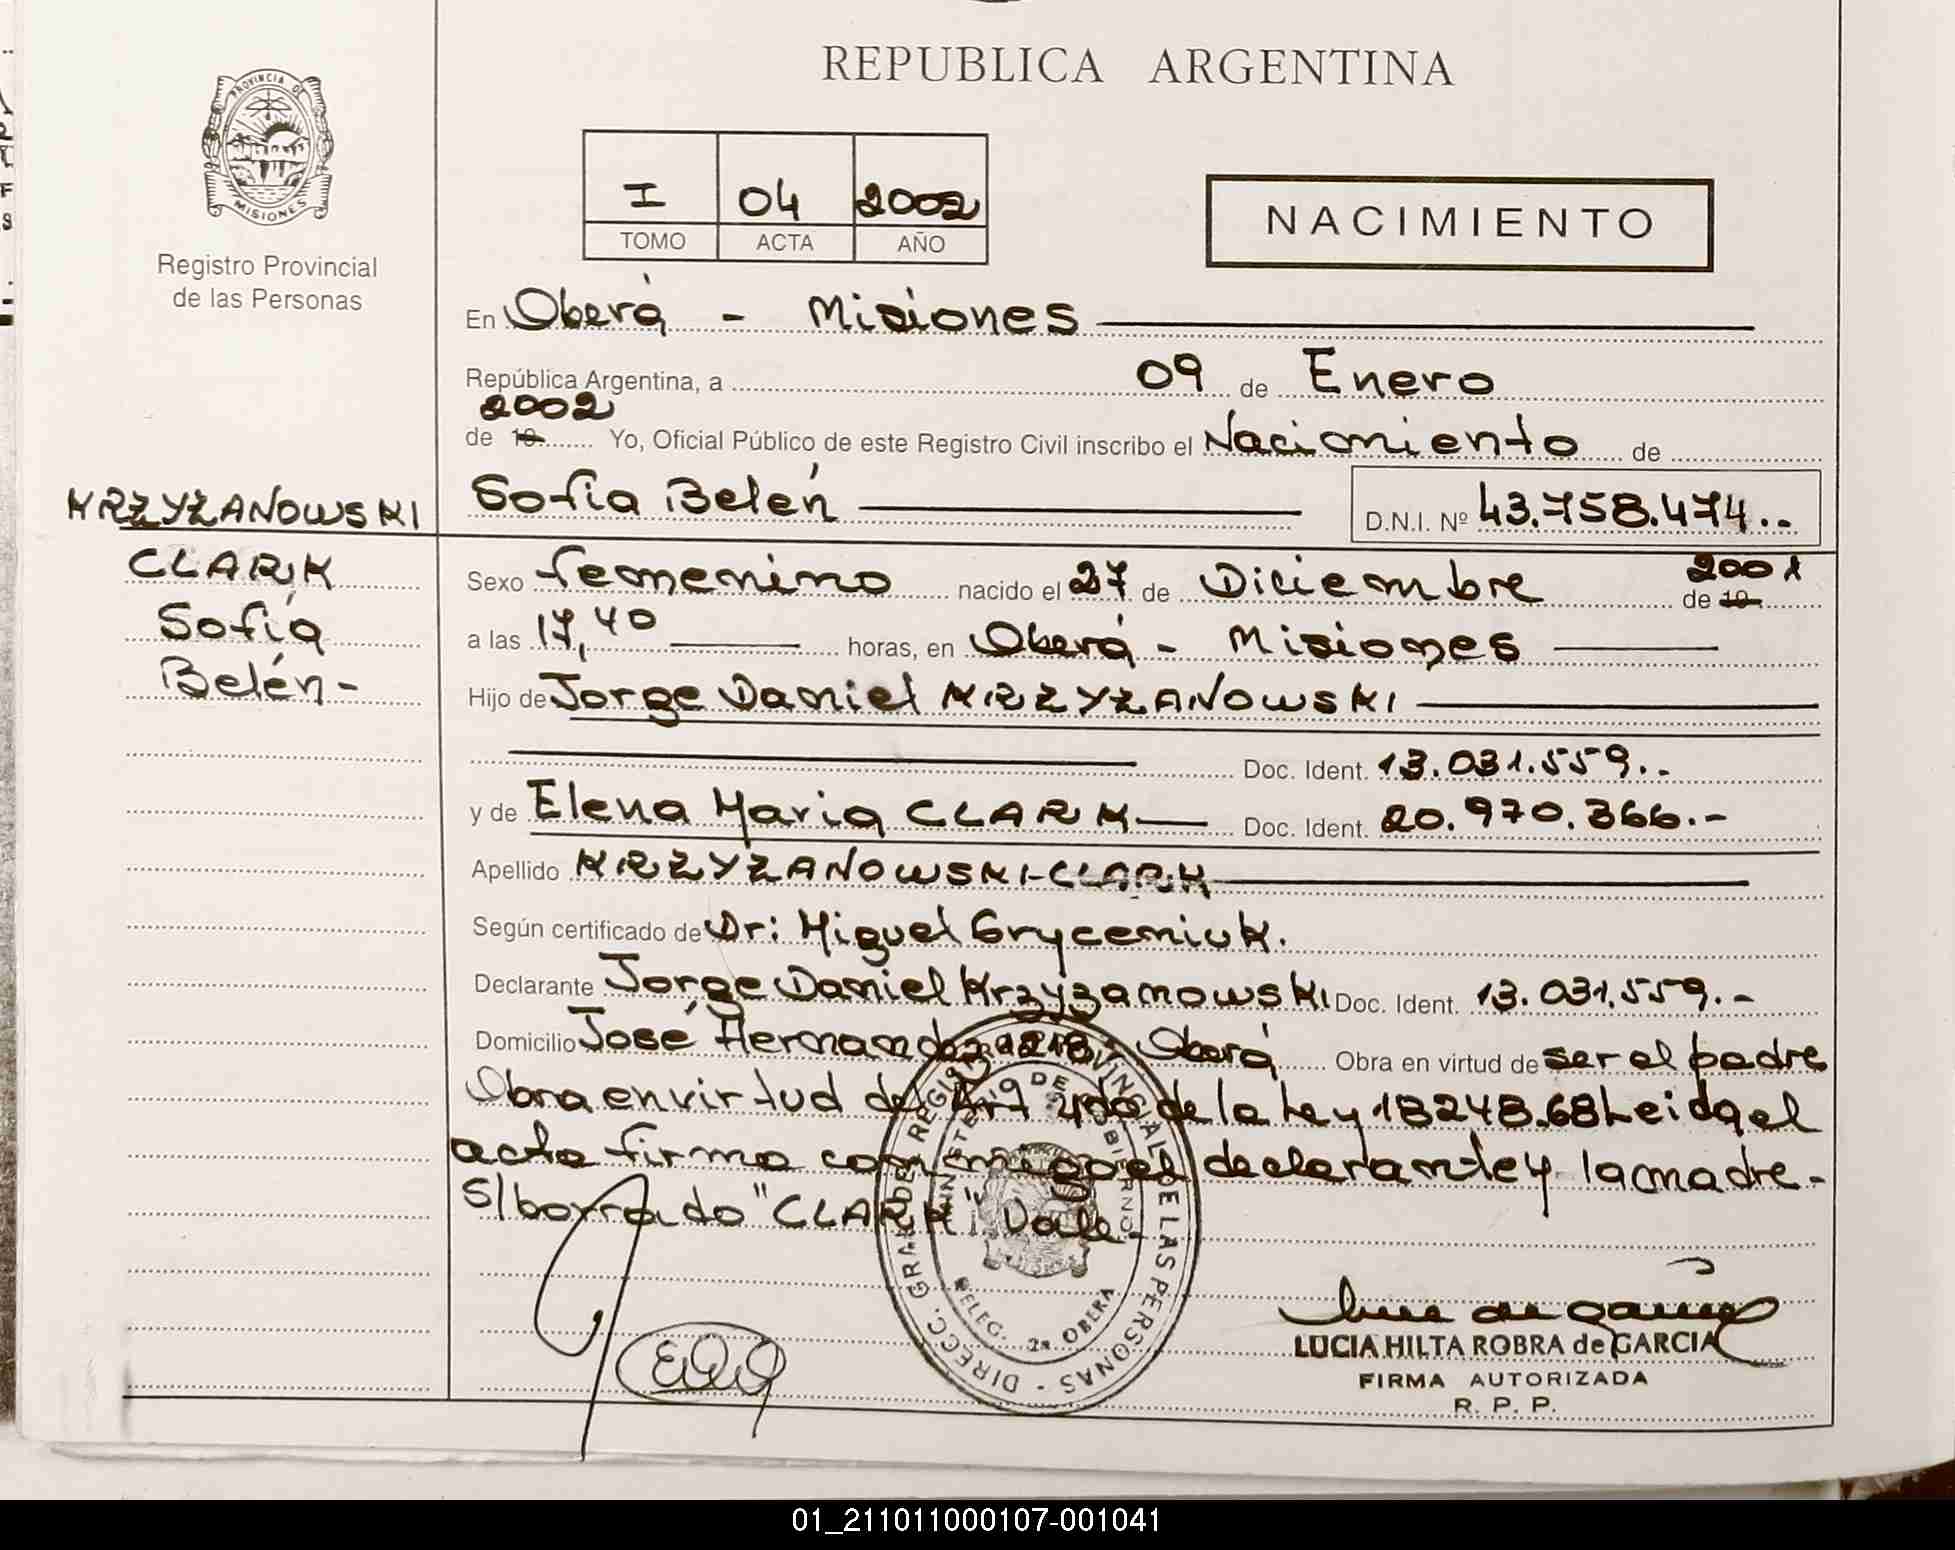 REPUBLICA ARGENTINA
PROVINCIA DE
MISIONES
Registro Provincial
de las Personas
I 04 2002
TOMO ACTA AÑO
NACIMIENTO
En Oberá - Misiones
República Argentina, a 09 de Enero
2002
de 19 Yo, Oficial Público de este Registro Civil inscribo el Nacimiento de
KRZYZANOWSKI Sofía Belén D.N.I. Nº 43.758.474..
CLARK
Sofía
Belén-
Sexo femenino nacido el 27 de Diciembre de 19 2001
a las 17,40 horas, en Oberá - Misiones
Hijo de Jorge Daniel KRZYZANOWSKI
Doc. Ident. 13.031.559..
y de Elena Maria CLARK Doc. Ident. 20.970.366.-
Apellido KRZYZANOWSKI-CLARK
Según certificado de Dr: Miguel Gryceniuk.
Declarante Jorge Daniel Krzyzanowski Doc. Ident. 13.031.559.-
Domicilio José Hernandez 1218 Oberá Obra en virtud de ser el padre
Obra en virtud del Art 4to de la Ley 18248.68 Leida el
acta firma conmigo el declarante y la madre.-
S/borrado "CLARK" Vale.-
DIRECC. GRAL DE REGISTRO PROVINCIAL DE LAS PERSONAS
MINISTERIO DE GOBIERNO
DELEG. 2a OBERA
LUCIA HILTA ROBRA de GARCIA
FIRMA AUTORIZADA
R. P. P.
01_211011000107-001041